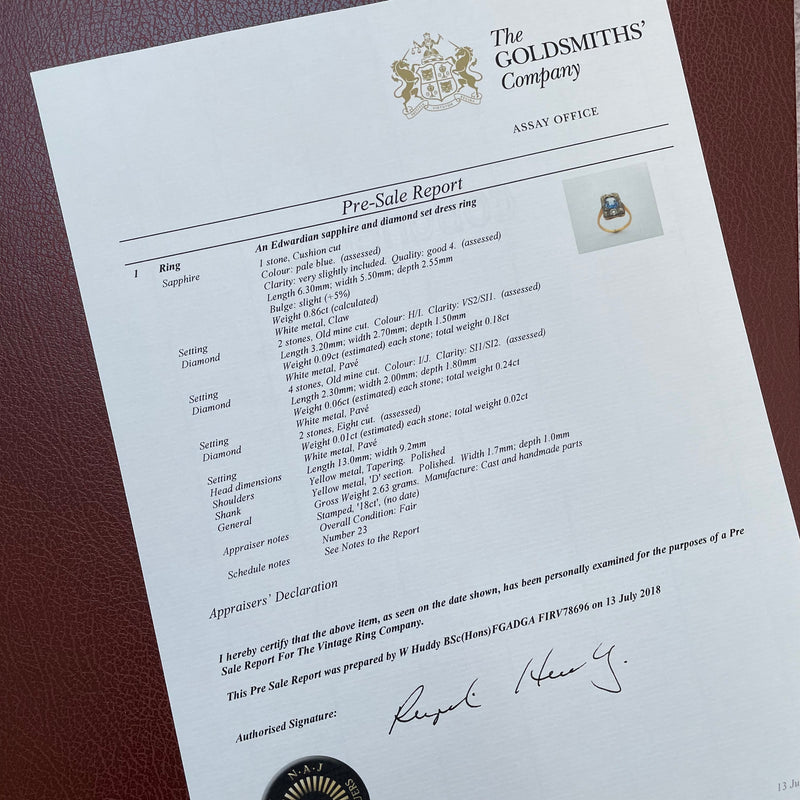 The
GOLDSMITHS'
Company
ASSAY OFFICE
Pre-Sale Report
1 Ring An Edwardian sapphire and diamond set dress ring
Sapphire 1 stone, Cushion cut
Colour: pale blue. (assessed)
Clarity: very slightly included. Quality: good 4. (assessed)
Length 6.30mm; width 5.50mm; depth 2.55mm
Bulge: slight (+5%)
Weight 0.86ct (calculated)
Setting White metal, Claw
Diamond 2 stones, Old mine cut. Colour: H/I. Clarity: VS2/SI1. (assessed)
Length 3.20mm; width 2.70mm; depth 1.50mm
Weight 0.09ct (estimated) each stone; total weight 0.18ct
Setting White metal, Pavé
Diamond 4 stones, Old mine cut. Colour: I/J. Clarity: SI1/SI2. (assessed)
Length 2.30mm; width 2.00mm; depth 1.80mm
Weight 0.06ct (estimated) each stone; total weight 0.24ct
Setting White metal, Pavé
Diamond 2 stones, Eight cut. (assessed)
Weight 0.01ct (estimated) each stone; total weight 0.02ct
Setting White metal, Pavé
Head dimensions Length 13.0mm; width 9.2mm
Shoulders Yellow metal, Tapering. Polished
Shank Yellow metal, 'D' section. Polished. Width 1.7mm; depth 1.0mm
General Gross Weight 2.63 grams. Manufacture: Cast and handmade parts
Stamped, '18ct', (no date)
Appraiser notes Overall Condition: Fair
Number 23
Schedule notes See Notes to the Report
Appraisers' Declaration
I hereby certify that the above item, as seen on the date shown, has been personally examined for the purposes of a Pre
Sale Report For The Vintage Ring Company.
This Pre Sale Report was prepared by W Huddy BSc(Hons)FGADGA FIRV78696 on 13 July 2018
Authorised Signature:
N.A.J
13 Ju